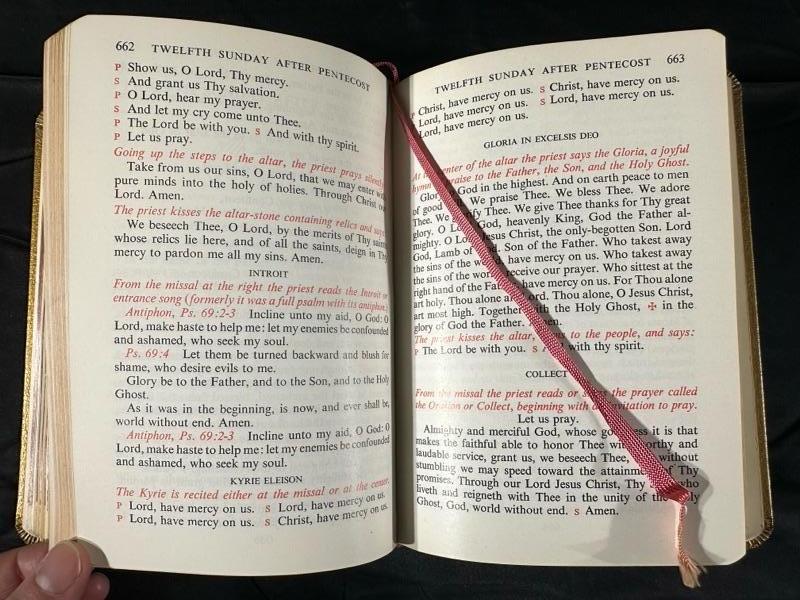 662 TWELFTH SUNDAY AFTER PENTECOST
P Show us, O Lord, Thy mercy.
S And grant us Thy salvation.
P O Lord, hear my prayer.
S And let my cry come unto Thee.
P The Lord be with you. S And with thy spirit.
P Let us pray.
Going up the steps to the altar, the priest prays silently
Take from us our sins, O Lord, that we may enter with
pure minds into the holy of holies. Through Christ our
Lord. Amen.
The priest kisses the altar-stone containing relics and says
We beseech Thee, O Lord, by the merits of Thy saints
whose relics lie here, and of all the saints, deign in Thy
mercy to pardon me all my sins. Amen.
INTROIT
From the missal at the right the priest reads the Introit or
entrance song (formerly it was a full psalm with its antiphon.)
Antiphon, Ps. 69:2-3 Incline unto my aid, O God: O
Lord, make haste to help me: let my enemies be confounded
and ashamed, who seek my soul.
Ps. 69:4 Let them be turned backward and blush for
shame, who desire evils to me.
Glory be to the Father, and to the Son, and to the Holy
Ghost.
As it was in the beginning, is now, and ever shall be,
world without end. Amen.
Antiphon, Ps. 69:2-3 Incline unto my aid, O God: O
Lord, make haste to help me: let my enemies be confounded
and ashamed, who seek my soul.
KYRIE ELEISON
The Kyrie is recited either at the missal or at the center.
P Lord, have mercy on us. S Lord, have mercy on us.
P Lord, have mercy on us. S Christ, have mercy on us.
TWELFTH SUNDAY AFTER PENTECOST 663
P Christ, have mercy on us. S Christ, have mercy on us.
Lord, have mercy on us. S Lord, have mercy on us.
Lord, have mercy on us.
GLORIA IN EXCELSIS DEO
At the center of the altar the priest says the Gloria, a joyful
hymn praise to the Father, the Son, and the Holy Ghost.
Glory God in the highest. And on earth peace to men
of good We praise Thee. We bless Thee. We adore
Thee. We glorify Thee. We give Thee thanks for Thy great
glory. O Lord God, heavenly King, God the Father al-
mighty. O Lord Jesus Christ, the only-begotten Son. Lord
God, Lamb of God, Son of the Father. Who takest away
the sins of the world, have mercy on us. Who takest away
the sins of the world, receive our prayer. Who sittest at the
right hand of the Father, have mercy on us. For Thou alone
art holy. Thou alone art Lord. Thou alone, O Jesus Christ,
art most high. Together with the Holy Ghost, ✠ in the
glory of God the Father. Amen.
The priest kisses the altar, turns to the people, and says:
P The Lord be with you. S And with thy spirit.
COLLECT
From the missal the priest reads or sings the prayer called
the Oration or Collect, beginning with an invitation to pray.
Let us pray.
Almighty and merciful God, whose goodness it is that
makes the faithful able to honor Thee with worthy and
laudable service, grant us, we beseech Thee, without
stumbling we may speed toward the attainment of Thy
promises. Through our Lord Jesus Christ, Thy Son, who
liveth and reigneth with Thee in the unity of the Holy
Ghost, God, world without end. S Amen.